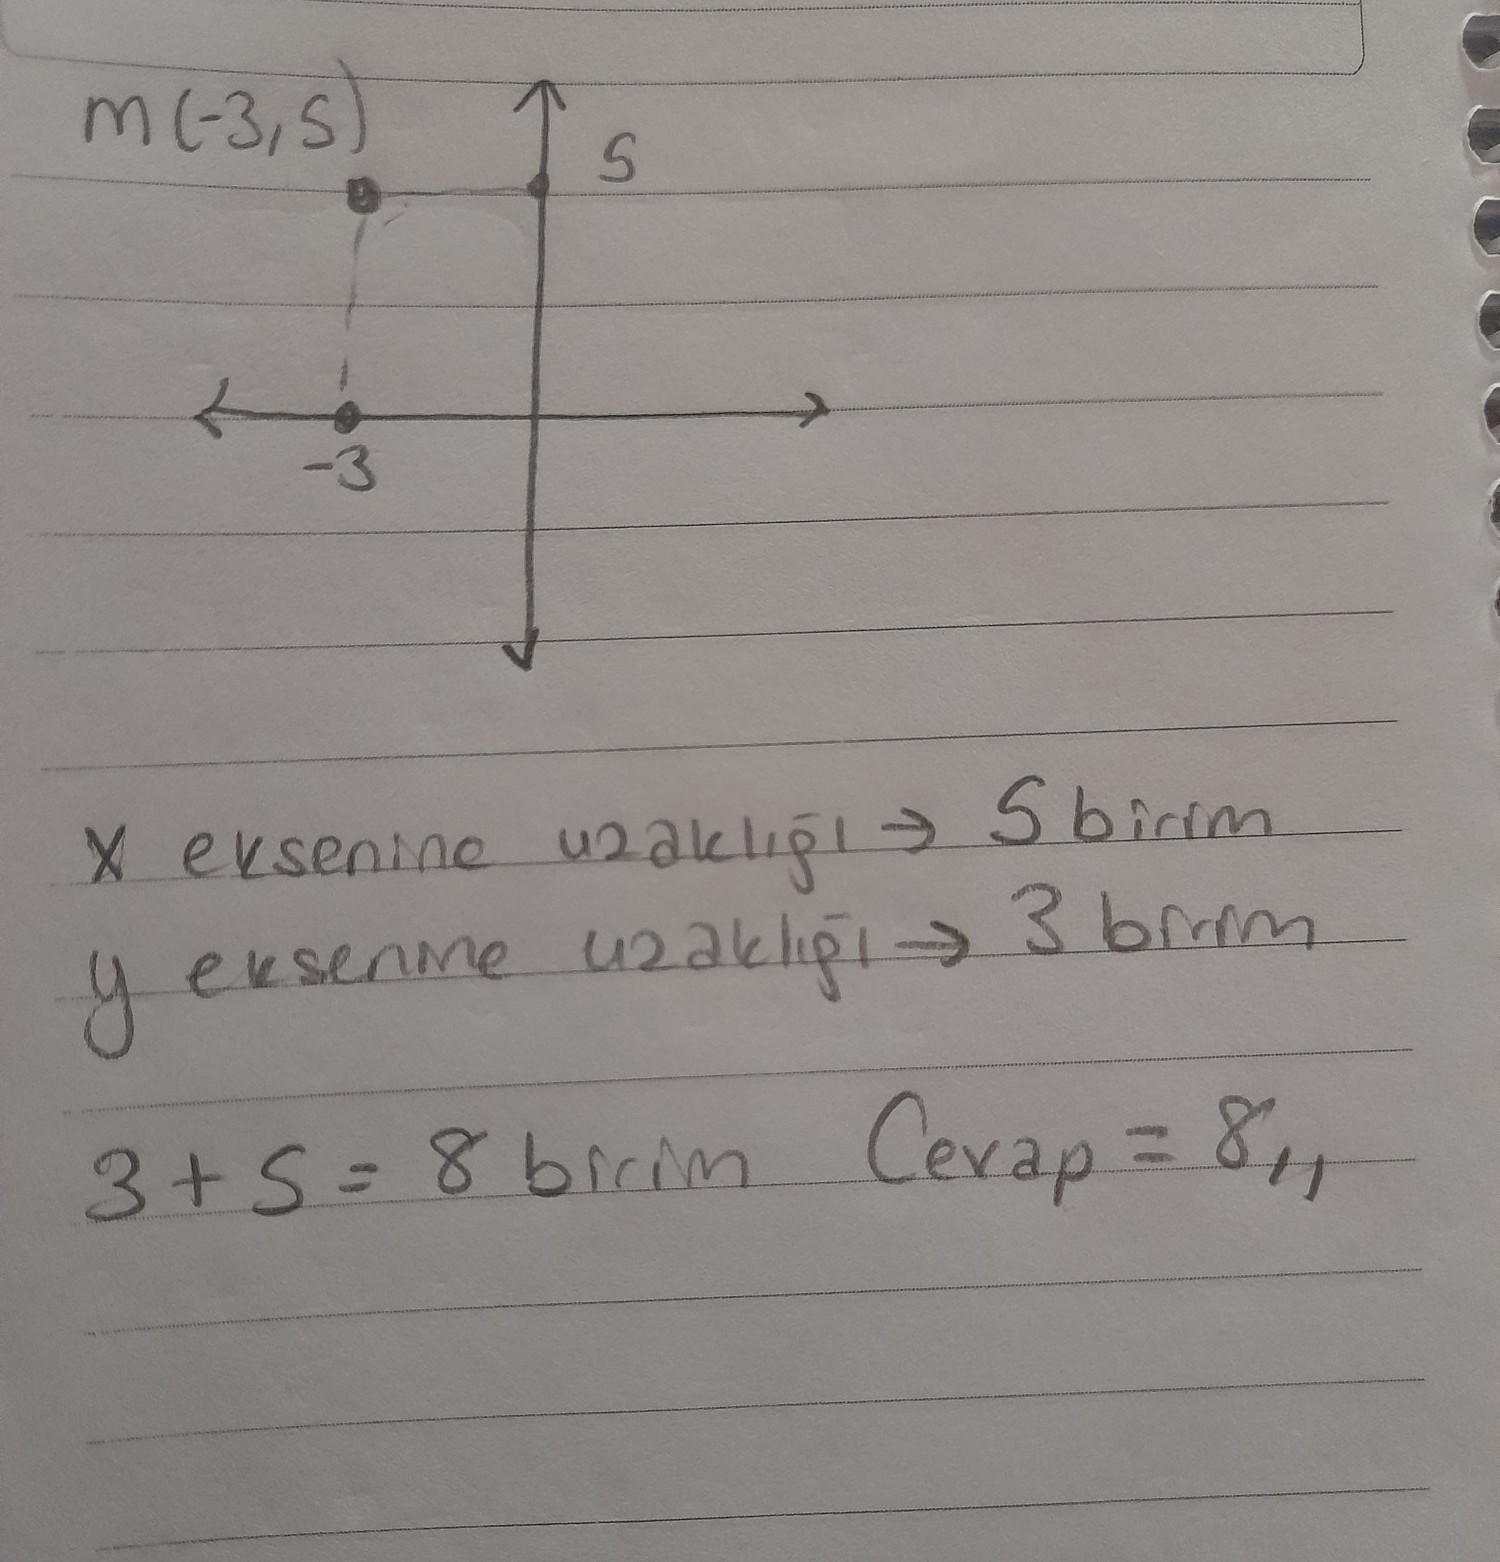 m(-3,5)
5
-3
x eksenine uzaklığı → 5 birim
y eksenine uzaklığı → 3 birim
3+5=8 birim Cevap = 8,,